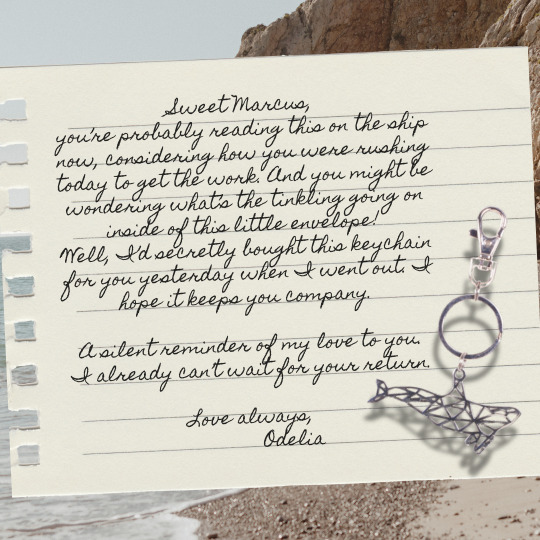 Sweet Marcus,
you're probably reading this on the ship
now, considering how you were rushing
today to get the work. And you might be
wondering what's the tinkling going on
inside of this little envelope!
Well, I'd secretly bought this keychain
for you yesterday when I went out. I
hope it keeps you company.
A silent reminder of my love to you.
I already can't wait for your return.
Love always,
Odelia